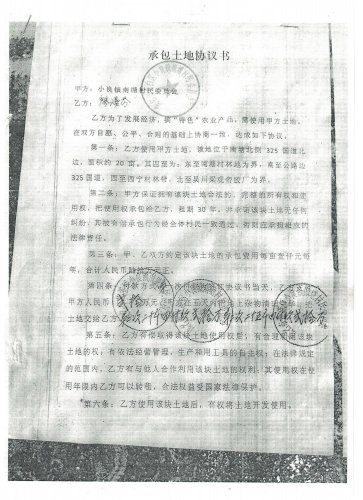 承包土地协议书
甲方：小良镇南塘村民委员会
乙方：
乙方为了发展经济，搞“特色”农业产品，需使用甲方土地，
在双方自愿、公平、合同的基础上协商一致，达成如下协议。
第一条：乙方使用甲方土地，该地位于南塘北侧 325 国道北
边，面积约 20 亩。其四至为：东至南塘村林地为界，南至公路边
325 国道，西至西宁村林带，北至吴川 为界。
第二条：甲方保证拥有该块土地合法的、完整的所有权和使
用权，把使用权承包给乙方，租期 30 年，并承诺该块土无任何
纠纷，其被有偿承包行为经全体村民一致通过，否则应承担相应的
法律责任。
第三条：甲、乙双方约定该块土地的承包费用每亩壹仟元每
年，合计人民币陆拾万元正。
第四条：付款方式 协议书当天，乙方
甲方人民币 万元 在五天内 上杂物清
土地交给乙方
第五条：乙方有偿取得该块土地使用权后；有合理使用该块
土地的权；有依法经营管理，生产和用工具的自主权；在法律规定
的范围内，乙方有与他人合作利用该块土地的权利；其使用权在使
用年限内乙方可以转租，合法权益受国家法律保护。
第六条：乙方使用该块土地后，有权将土地开发使用。